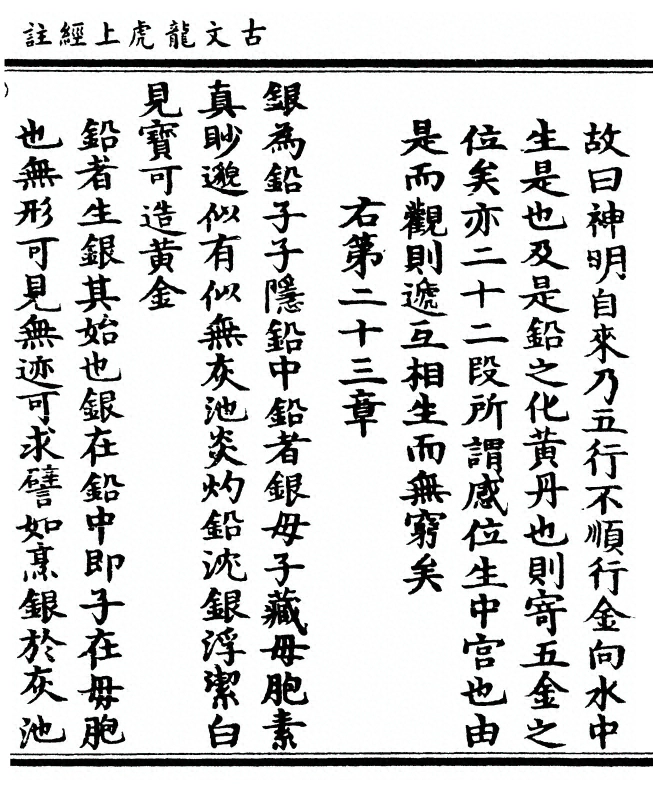 古文龍虎上經註
故曰神明自來乃五行不順行金向水中
生是也及是鉛之化黃丹也則寄五金之
位矣亦二十二段所謂感位生中宮也由
是而觀則遞互相生而無窮矣
右第二十三章
銀為鉛子子隱鉛中鉛者銀母子藏母胞素
真眇邈似有似無灰池炎灼鉛沈銀浮潔白
見寶可造黃金
鉛者生銀其始也銀在鉛中即子在母胞
也無形可見無迹可求譬如熹銀於灰池